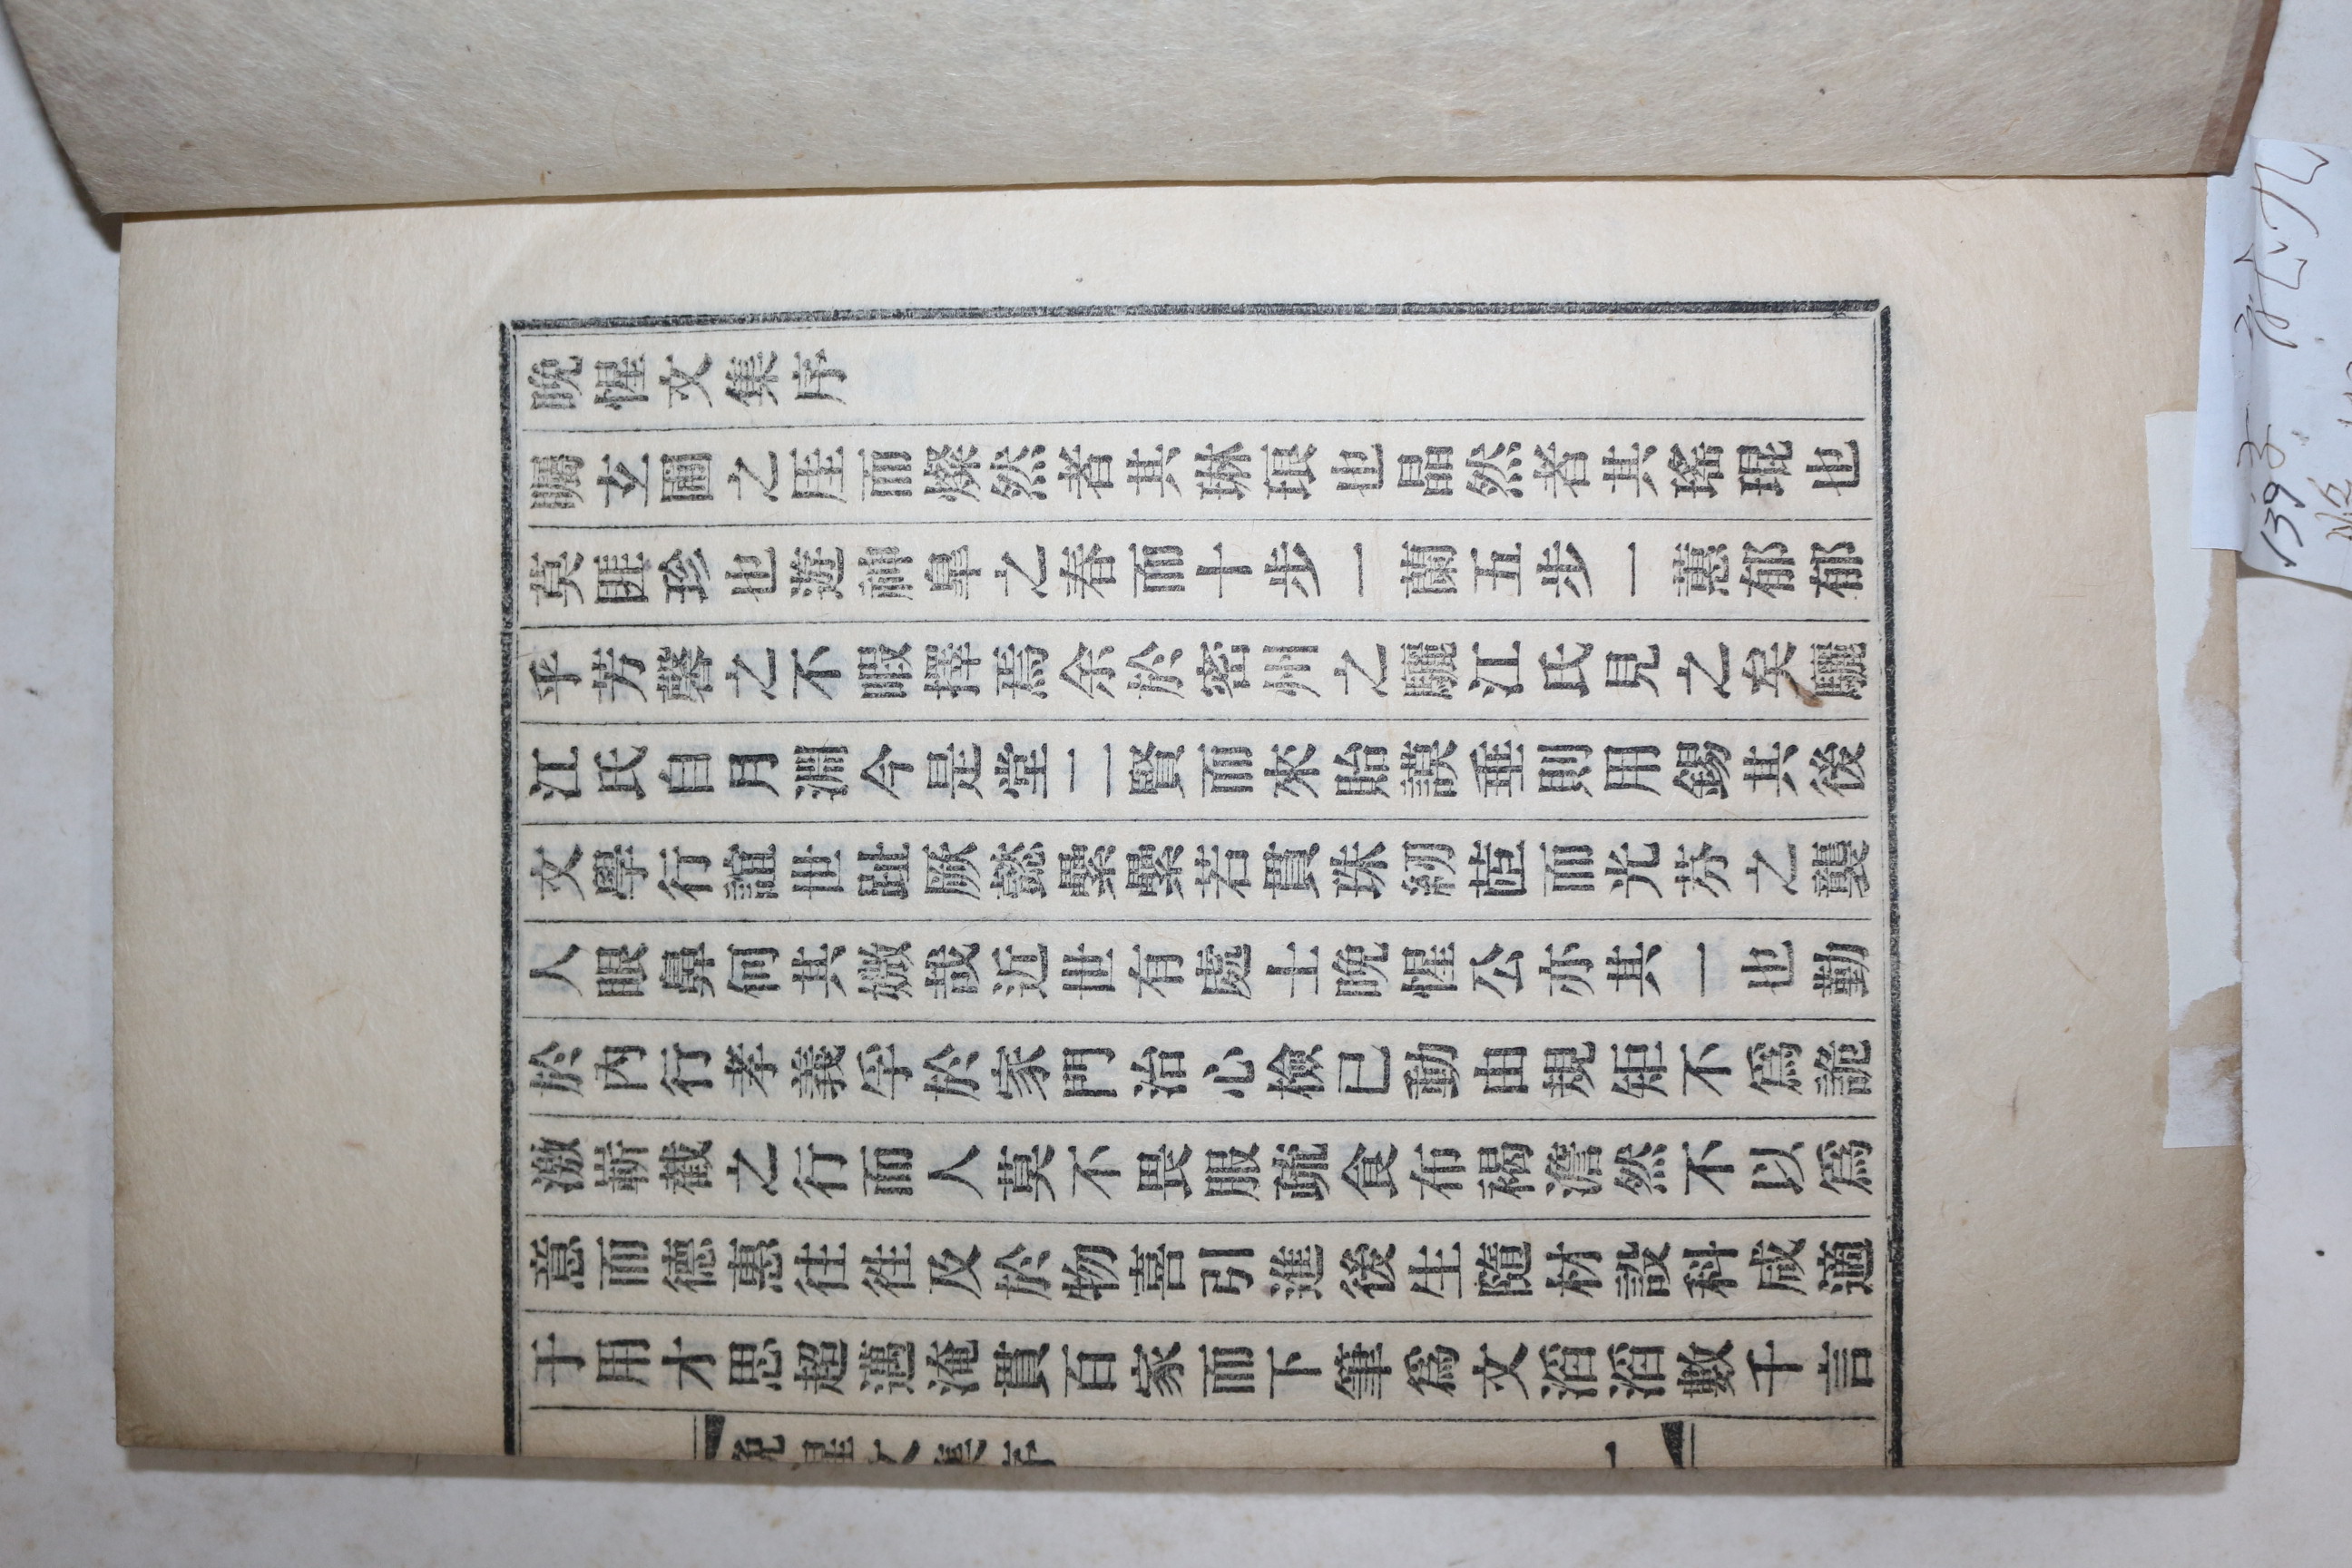 晩惺文集序
矚玄圃之厓而燦然者其琳琅也晶然者其璠琨也
莫匪珍也遊神皐之春而十步一蘭五步一蕙郁郁
乎芳馨之不暇擇焉余於密州之驪江氏見之矣驪
江氏自月淵今是堂二賢而來貽謨垂則用錫其後
文學行誼世趾厥懿纍纍若貫珠紉茝而光芬之襲
人眼鼻何其媺哉近世有處士晩惺公亦其一也勤
於內行孝義孚於家門治心檢已動由規矩不爲詭
激嶄截之行而人莫不畏服蔬食布褐澹然不以爲
意而德惠往往及於物喜引進後生隨材設科咸適
于用才思超邁淹貫百家而下筆爲文滔滔數千言
晩惺文集序 一
1393